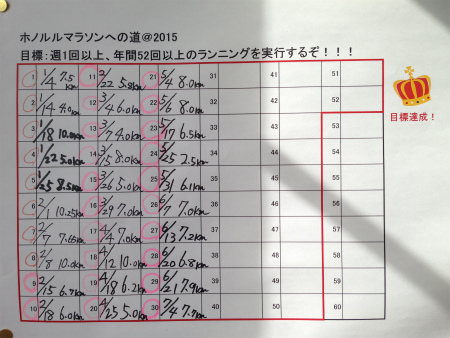 ホノルルマラソンへの道@2015
目標：週1回以上、年間52回以上のランニングを実行するぞ！！！
1 1/4 7.5km 11 2/22 5.8km 21 5/4 8.0km 31 41 51
2 1/14 4.0km 12 3/4 6.0km 22 5/6 8.0km 32 42 52
3 1/18 10.0km 13 3/7 4.0km 23 5/17 6.5km 33 43 53
4 1/22 5.0km 14 3/15 8.0km 24 5/25 2.5km 34 44 54
5 1/25 8.5km 15 3/26 5.0km 25 5/31 6.1km 35 45 55
6 2/1 10.25km 16 3/29 7.0km 26 6/7 7.0km 36 46 56
7 2/7 7.65km 17 4/4 7.0km 27 6/13 7.2km 37 47 57
8 2/8 10.0km 18 4/12 10.0km 28 6/20 6.8km 38 48 58
9 2/15 6.7km 19 4/18 6.2km 29 6/21 7.9km 39 49 59
10 2/18 6.0km 20 4/25 5.0km 30 7/4 7.7km 40 50 60
目標達成！